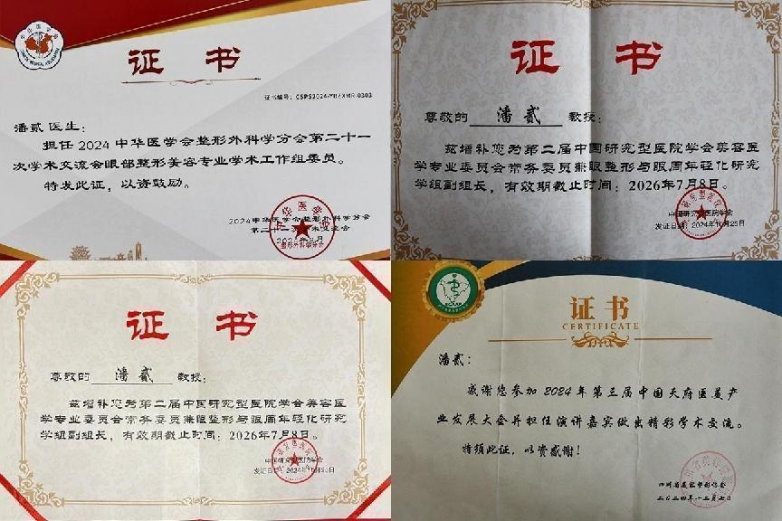 证书
潘贰医生:
担任2024中华医学会整形外科学分会第二十一
次学术交流会眼部整形美容专业学术工作组委员。
特发此证,以资鼓励。
2024中华医学会整形外科学分会
证书
尊敬的 潘贰 教授:
兹增补您为第二届中国研究型医院学会美容医
学专业委员会常务委员兼眼整形与眼周年轻化研究
学组副组长,有效期截止时间:2026年7月8日。
中国研究型医院学会
发证日期:2024年10月25日
证书
尊敬的 潘贰 教授:
兹增补您为第二届中国研究型医院学会美容医
学专业委员会常务委员兼眼整形与眼周年轻化研究
学组副组长,有效期截止时间:2026年7月8日。
中国研究型医院学会
证书
CERTIFICATE
潘贰:
感谢您参加2024年第三届中国天府医美产
业发展大会并担任演讲嘉宾做出精彩学术交流。
特颁此证,以资感谢!